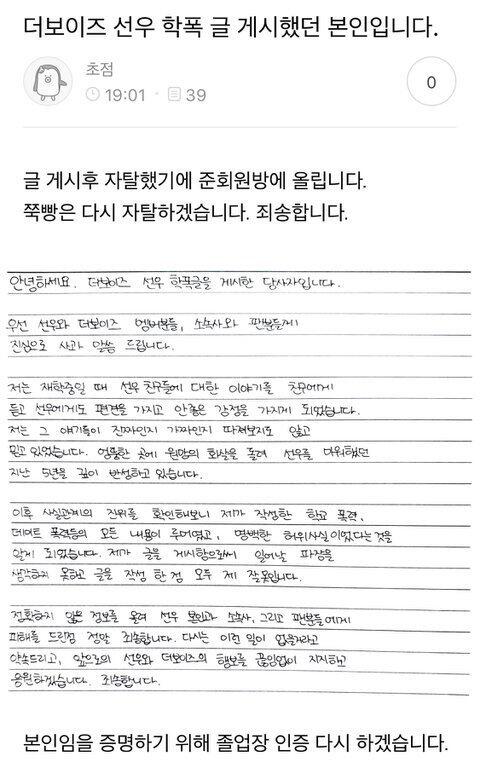 더보이즈 선우 학폭 글 게시했던 본인입니다.
초점
19:01
39
0
글 게시후 자탈했기에 준회원방에 올립니다.
쭉빵은 다시 자탈하겠습니다. 죄송합니다.
안녕하세요. 더보이즈 선우 학폭글을 게시한 당사자입니다.
우선 선우와 더보이즈 멤버분들, 소속사와 팬분들께
진심으로 사과 말씀 드립니다.
저는 재학중일 때 선우 친구들에 대한 이야기를 친구에게
듣고 선우에게도 편견을 가지고 안좋은 감정을 가지게 되었습니다.
저는 그 얘기들이 진짜인지 가짜인지 따져보지도 않고
믿고 있었습니다. 엉뚱한 곳에 원망의 화살을 돌려 선우를 미워했던
지난 5년을 깊이 반성하고 있습니다.
이후 사실관계의 진위를 확인해보니 제가 작성한 학교 폭력,
데이트 폭력등의 모든 내용이 루머였고, 명백한 허위사실이었다는것을
알게 되었습니다. 제가 글을 게시함으로써 일어날 파장을
생각하지 못하고 글을 작성 한 점 모두 제 잘못입니다.
정확하지 않은 정보를 올려 선우 본인과 소속사, 그리고 팬분들에게
피해를 드린점 정말 죄송합니다. 다시는 이런 일이 없을거라고
약속드리고, 앞으로의 선우와 더보이즈의 행보를 끊임없이 지지하고
응원하겠습니다. 죄송합니다.
본인임을 증명하기 위해 졸업장 인증 다시 하겠습니다.